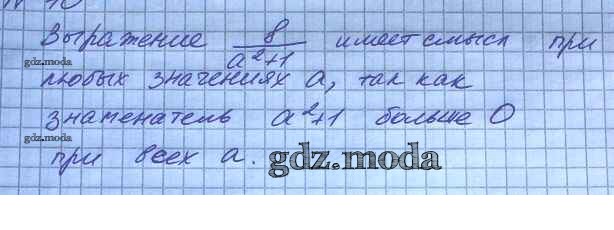 Выражение 8/(a²+1) имеет смысл при
gdz.moda
любых значениях a, так как
знаменатель a²+1 больше 0
gdz.moda
при всех a. gdz.moda